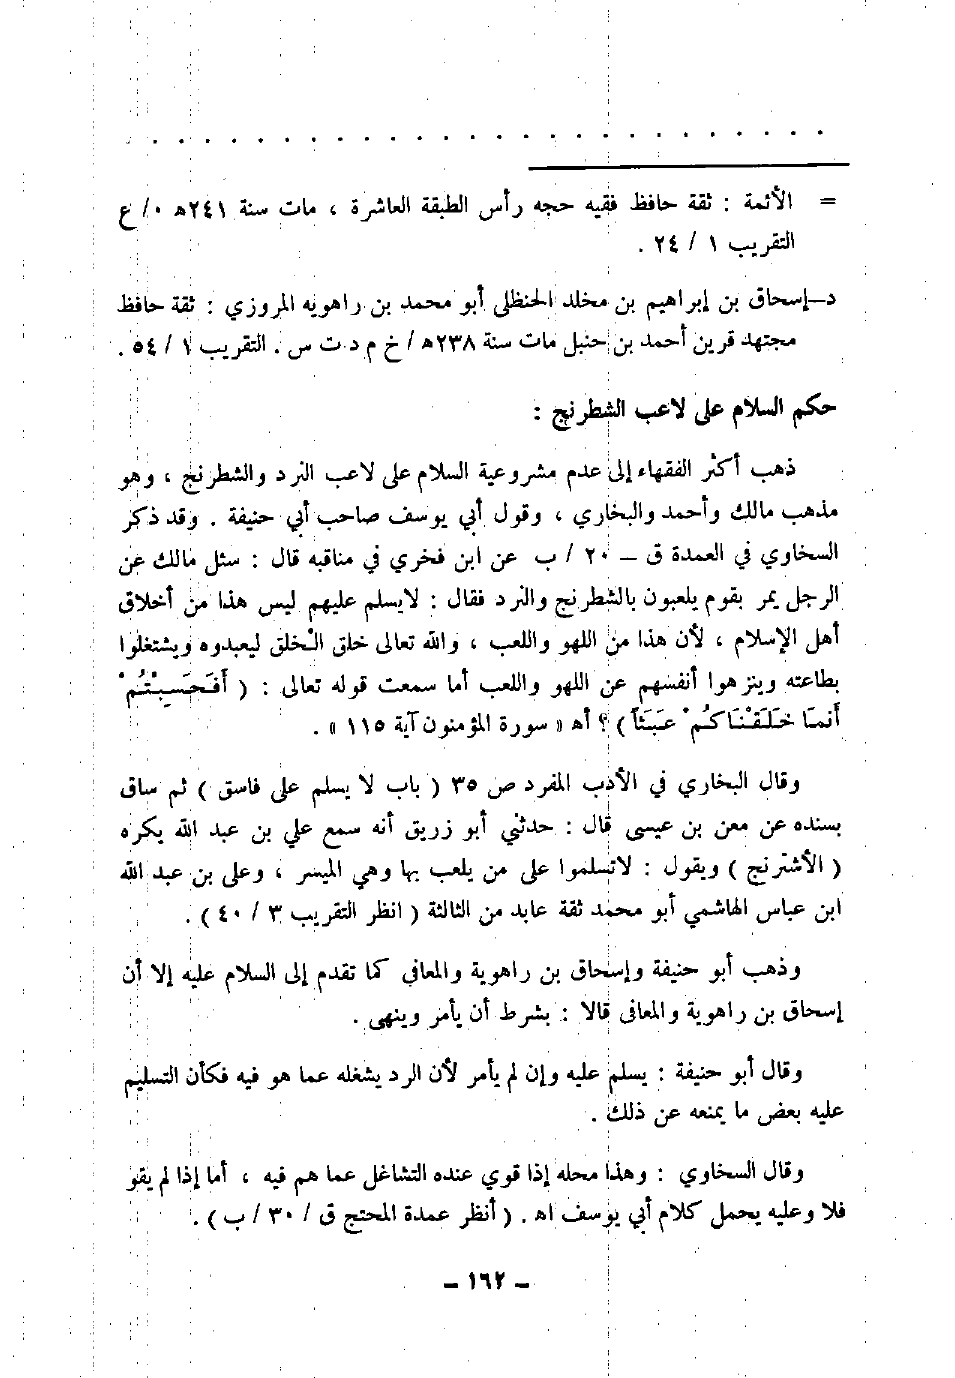 . . . . . . . . . . . . . . . . . . . . . . . . . . .
= الأئمة : ثقة حافظ فقيه حجه رأس الطبقة العاشرة ، مات سنة ٢٤١هـ ٠/ ع
التقريب ١ / ٢٤ .
د–إسحاق بن إبراهيم بن مخلد الحنظلى أبو محمد بن راهويه المروزي : ثقة حافظ
مجتهد قرين أحمد بن حنبل مات سنة ٢٣٨هـ / خ م د ت س . التقريب ١ / ٥٤ .
حكم السلام على لاعب الشطرنج :
ذهب أكثر الفقهاء إلى عدم مشروعية السلام على لاعب النرد والشطرنج ، وهو
مذهب مالك وأحمد والبخاري ، وقول أبي يوسف صاحب أبي حنيفة . وقد ذكر
السخاوي في العمدة ق – ٢٠ / ب عن ابن فخري في مناقبه قال : سئل مالك عن
الرجل يمر بقوم يلعبون بالشطرنج والنرد فقال : لايسلم عليهم ليس هذا من أخلاق
أهل الإسلام ، لأن هذا من اللهو واللعب ، والله تعالى خلق الخلق ليعبدوه ويشتغلوا
بطاعته وينزهوا أنفسهم عن اللهو واللعب أما سمعت قوله تعالى : ( أَفَحَسِبْتُمْ
أَنمَا خَلَقْنَاكُمْ عَبَثاً ) ؟ أهـ « سورة المؤمنون آية ١١٥ » .
وقال البخاري في الأدب المفرد ص ٣٥ ( باب لا يسلم على فاسق ) ثم ساق
بسنده عن معن بن عيسى قال : حدثني أبو زريق أنه سمع علي بن عبد الله يكره
( الأشترنج ) ويقول : لاتسلموا على من يلعب بها وهي الميسر ، وعلى بن عبد الله
ابن عباس الهاشمي أبو محمد ثقة عابد من الثالثة ( انظر التقريب ٣ / ٤٠ ) .
وذهب أبو حنيفة وإسحاق بن راهوية والمعافى كما تقدم إلى السلام عليه إلا أن
إسحاق بن راهوية والمعافى قالا : بشرط أن يأمر وينهى .
وقال أبو حنيفة : يسلم عليه وإن لم يأمر لأن الرد يشغله عما هو فيه فكأن التسليم
عليه بعض ما يمنعه عن ذلك .
وقال السخاوي : وهذا محله إذا قوي عنده التشاغل عما هم فيه ، أما إذا لم يقو
فلا وعليه يحمل كلام أبي يوسف اهـ . ( أنظر عمدة المحتج ق / ٣٠ / ب ) .
– ١٦٢ –